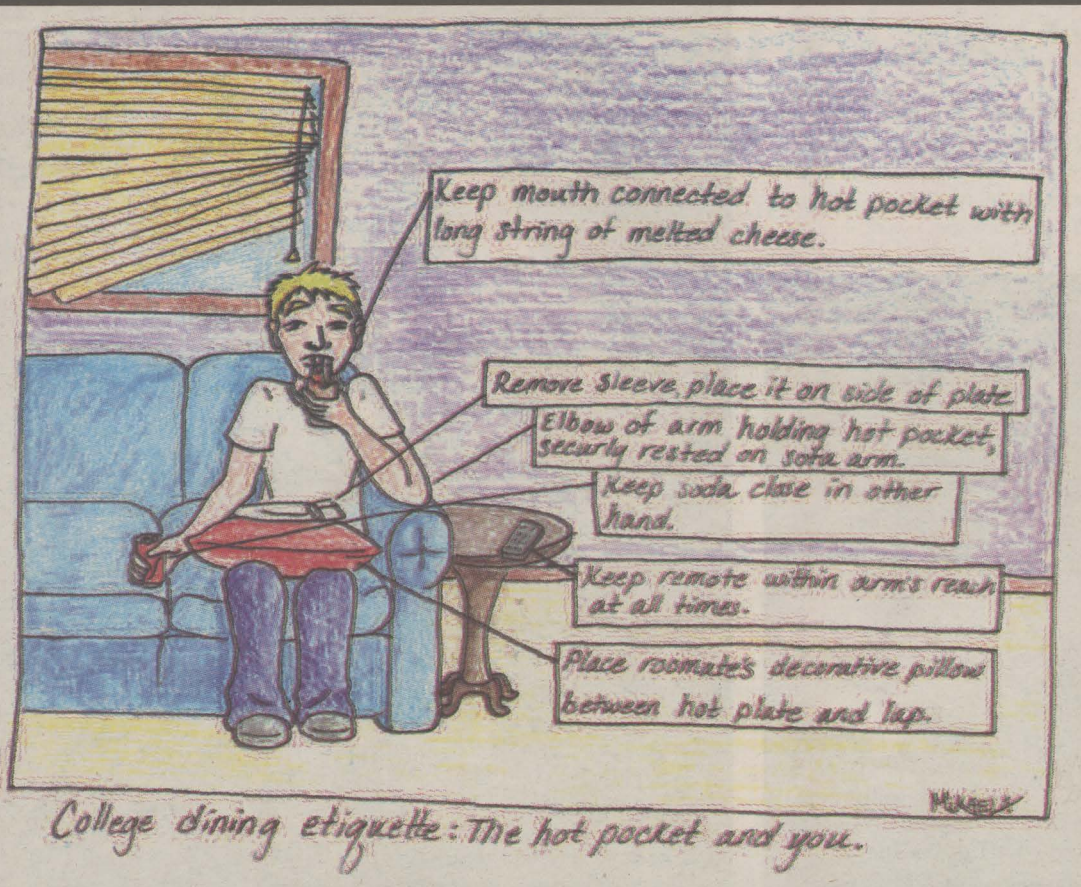 Keep mouth connected to hot pocket with
long string of melted cheese.
Remove sleeve, place it on side of plate
Elbow of arm holding hot pocket,
securly rested on sofa arm.
Keep soda close in other
hand.
Keep remote within arm's reach
at all times.
Place roomate's decorative pillow
between hot plate and lap.
College dining etiquette: The hot pocket and you.